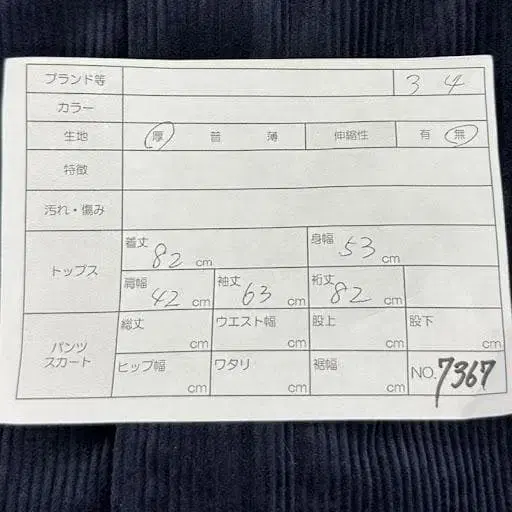 ブランド等 3 4
カラー
生地 厚 普 薄 伸縮性 有 無
特徴
汚れ・傷み
トップス
着丈 82 cm 身幅 53 cm
肩幅 42 cm 袖丈 63 cm 裄丈 82 cm
パンツ
スカート
総丈 cm ウエスト幅 cm 股上 cm 股下 cm
ヒップ幅 cm ワタリ cm 裾幅 cm NO. 7367